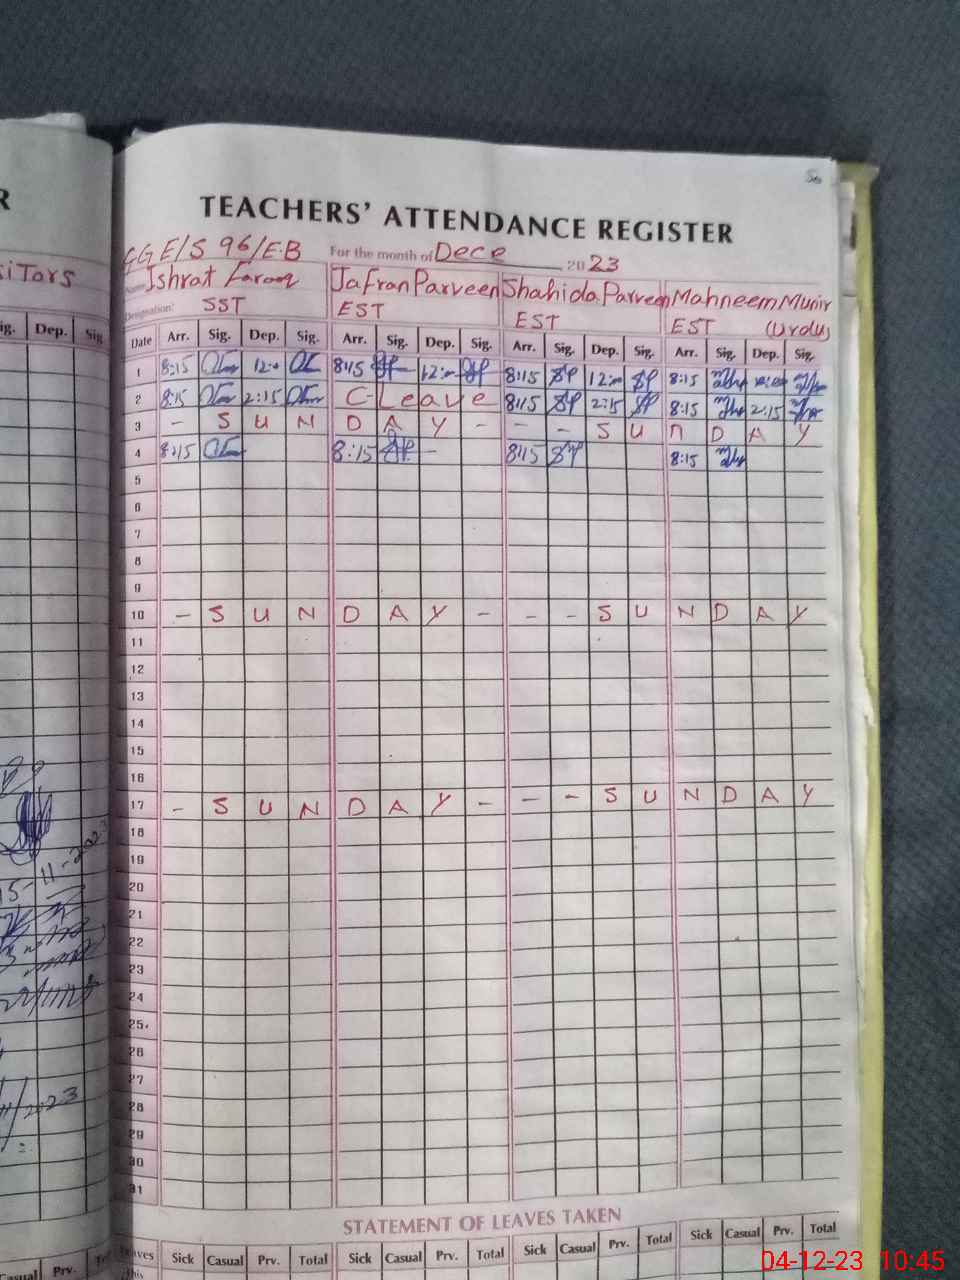 R
TEACHERS' ATTENDANCE REGISTER
GGE/S 96/E·B For the month of Dece 2023
Name Ishrat Farooq Jafran Parveen Shahida Parveen Mahneem Munir
Designation: SST EST EST EST (Urdu)
Date Arr. Sig. Dep. Sig. Arr. Sig. Dep. Sig. Arr. Sig. Dep. Sig. Arr. Sig. Dep. Sig.
1 8:15 8:15 8:15 8:15
2 8:15 2:15 C-Leave 8:15 2:15 8:15 2:15
3 - S U N D A Y - - - S U N D A Y
4 8:15 8:15 - 8:15 8:15
5
6
7
8
9
10 - S U N D A Y - - - S U N D A Y
11
12
13
14
15
16
17 - S U N D A Y - - - S U N D A Y
18
19
20
21
22
23
24
25
26
27
28
29
30
31
STATEMENT OF LEAVES TAKEN
Leaves Sick Casual Prv. Total Sick Casual Prv. Total Sick Casual Prv. Total Sick Casual Prv. Total
this
sitors
ig. Dep. Sig
15-11-2023
11/2023
Casual Prv. To
04-12-23 10:45